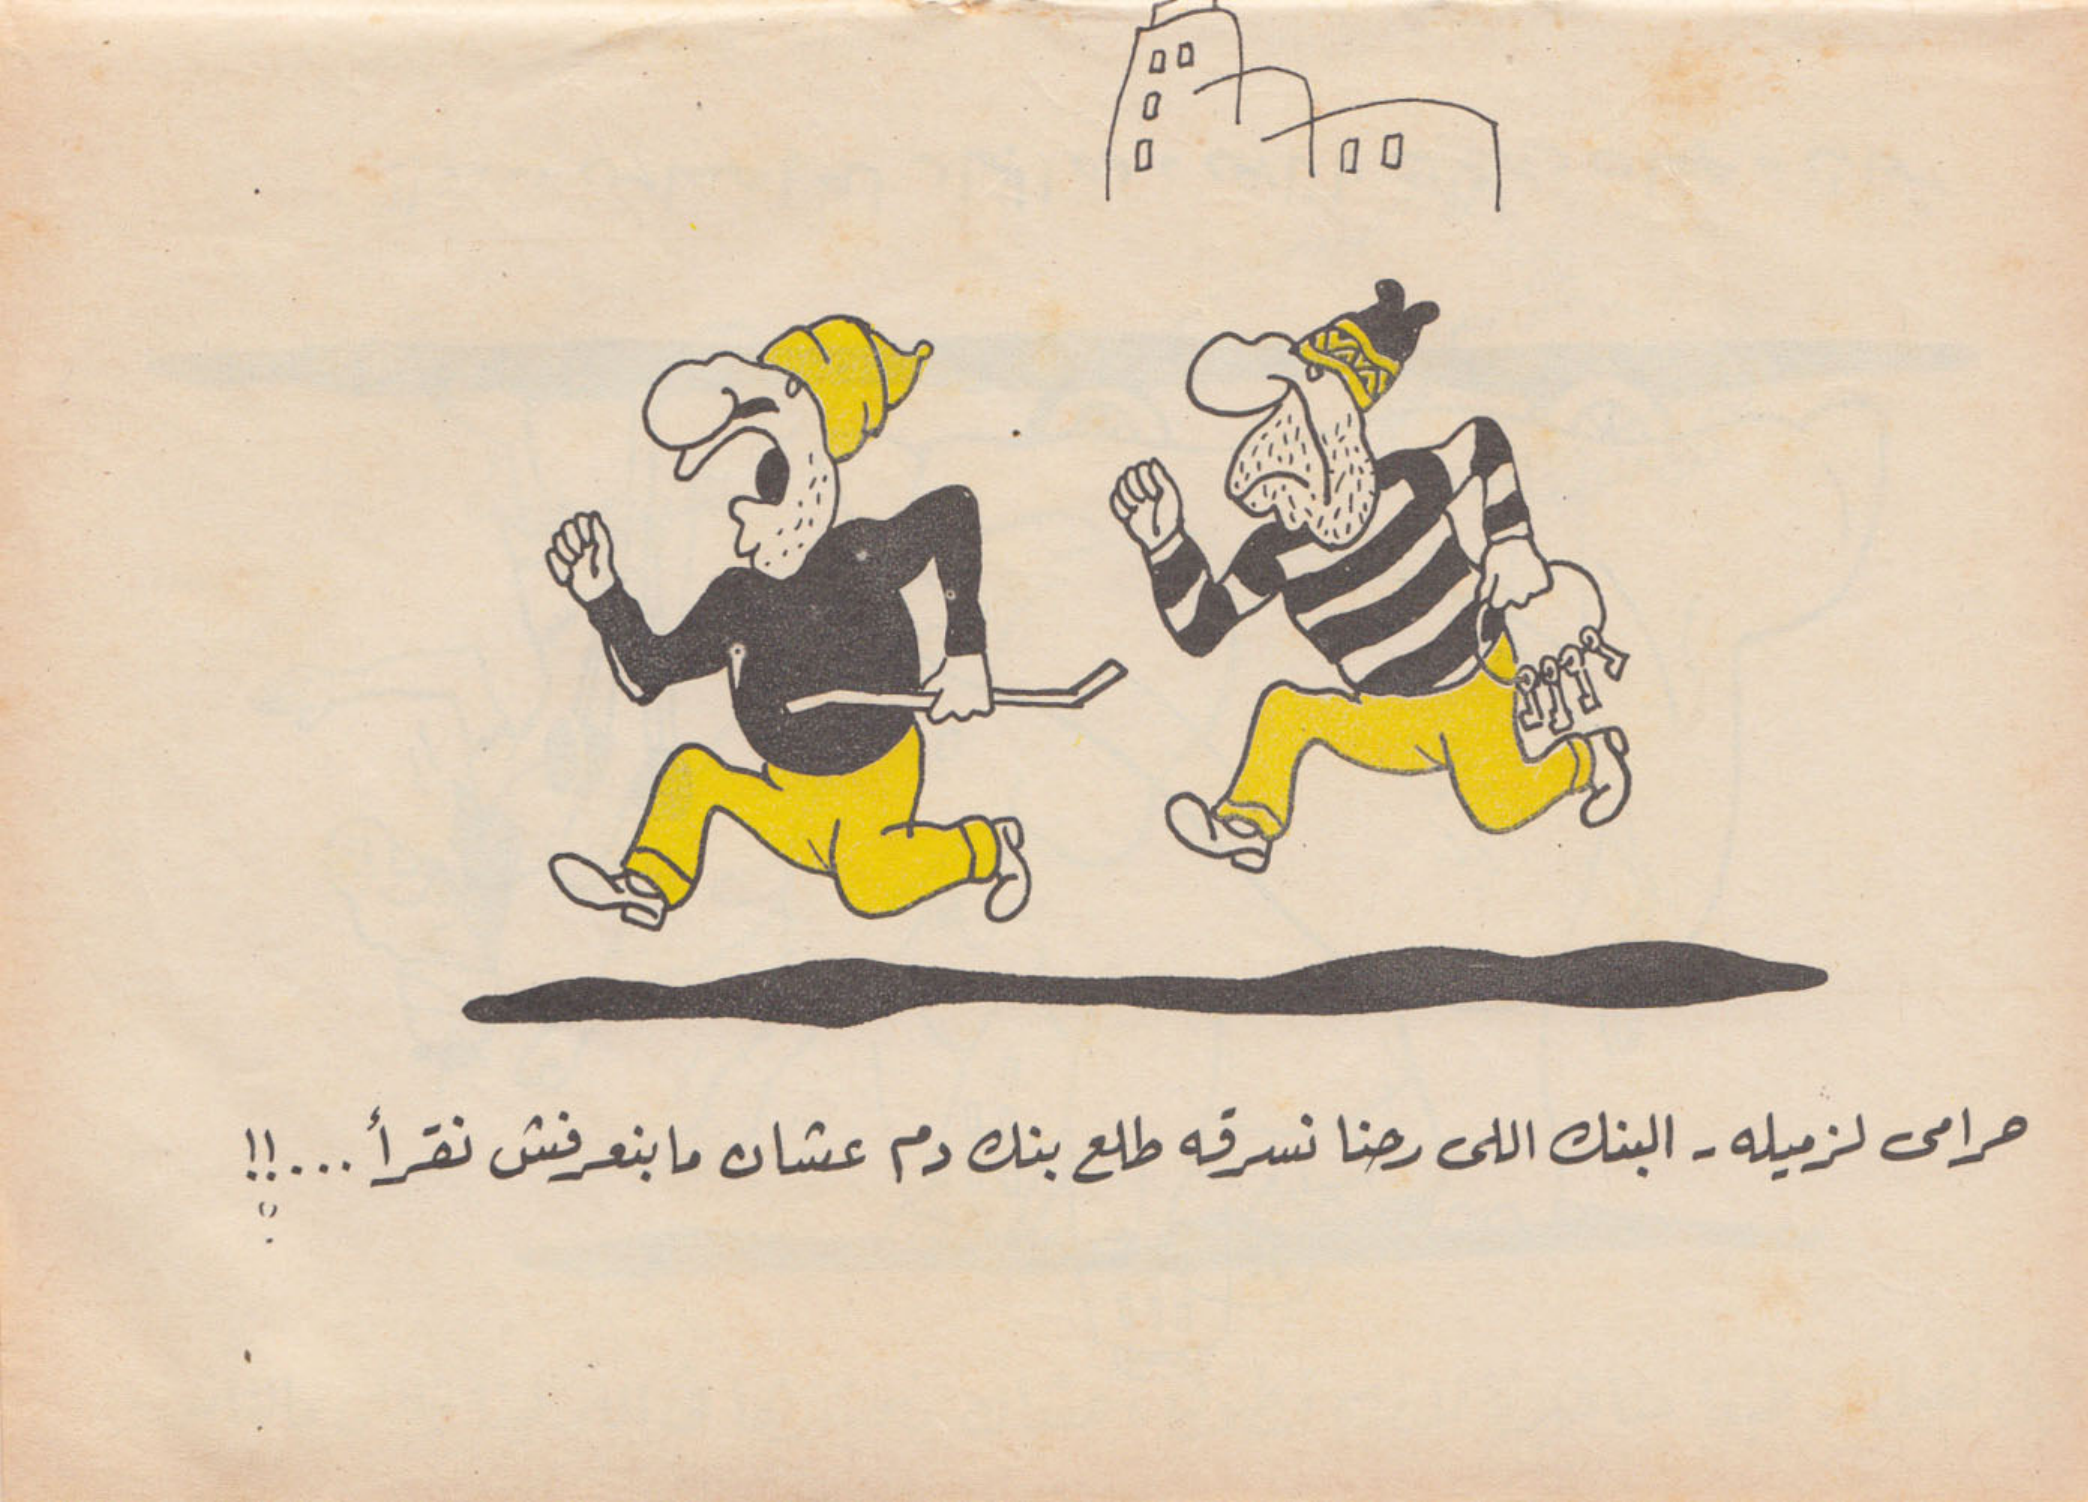 حرامى لزميله - البنك اللى رحنا نسرقه طلع بنك دم عشان مابنعرفش نقرأ ...!!